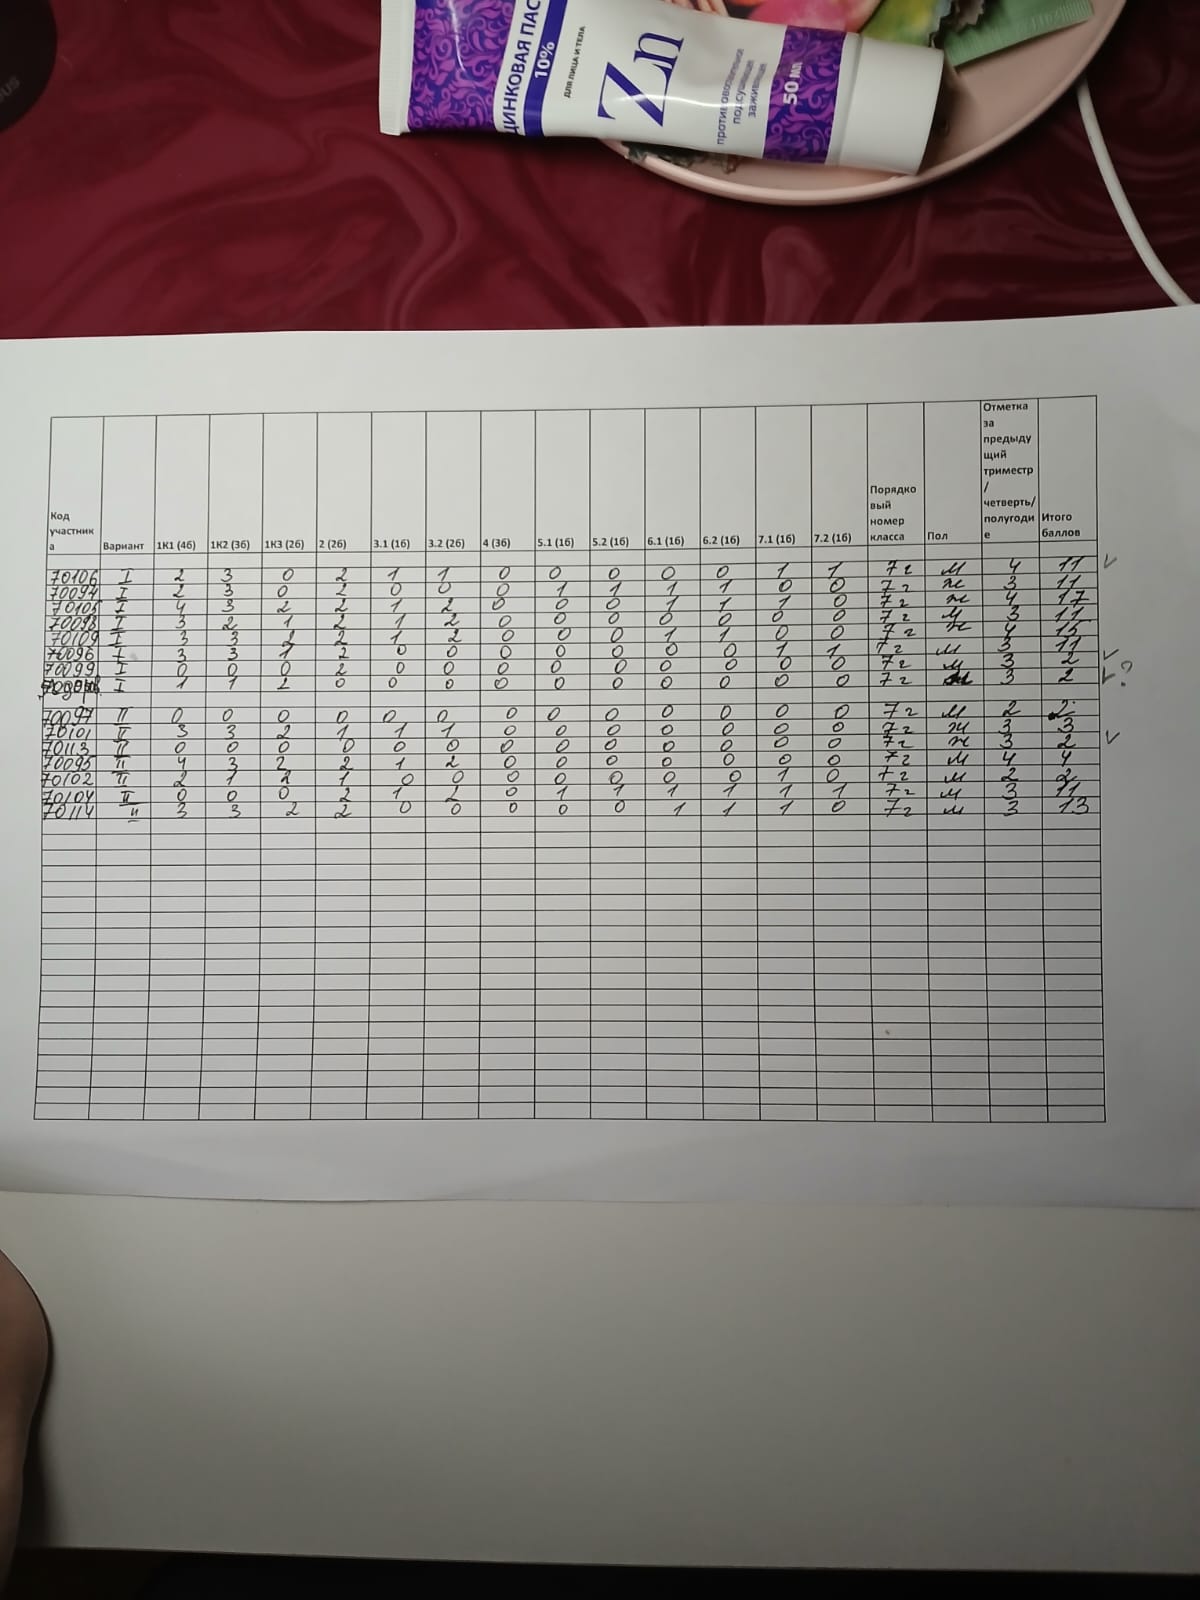 ЦИНКОВАЯ ПАС
10%
ДЛЯ ЛИЦА И ТЕЛА
Zn
противовоспалительное
подсушивающее
заживляющее
50 мл
Код участника Вариант 1К1 (4б) 1К2 (3б) 1К3 (2б) 2 (2б) 3.1 (1б) 3.2 (2б) 4 (3б) 5.1 (1б) 5.2 (1б) 6.1 (1б) 6.2 (1б) 7.1 (1б) 7.2 (1б) Порядковый номер класса Пол Отметка за предыдущий триместр/четверть/полугодие Итого баллов
70106 I 2 3 0 2 1 1 0 0 0 0 0 1 1 7г м 4 11 ✓
70094 I 2 3 0 2 0 0 0 1 1 1 1 0 0 7г ж 3 11
70105 I 4 3 2 2 1 2 0 0 0 1 1 1 0 7г ж 4 17
70098 I 3 2 1 2 1 2 0 0 0 0 0 0 0 7г м 3 11
70109 I 3 3 2 2 1 2 0 0 0 1 1 0 0 7г ж 4 15
70096 I 3 3 1 2 0 0 0 0 0 0 0 1 1 7г м 3 11 ✓
70099 I 0 0 0 2 0 0 0 0 0 0 0 0 0 7г м 3 2
I 1 1 2 0 0 0 0 0 0 0 0 0 0 7г 3 2 ✓ ?
70097 II 0 0 0 0 0 0 0 0 0 0 0 0 0 7г м 2 2
70101 II 3 3 2 1 1 1 0 0 0 0 0 0 0 7г ж 3 3
70113 II 0 0 0 0 0 0 0 0 0 0 0 0 0 7г ж 3 2 ✓
70095 II 4 3 2 2 1 2 0 0 0 0 0 0 0 7г м 4 4
70102 II 2 1 2 1 0 0 0 0 0 0 0 1 0 7г м 2 2
70104 II 0 0 0 2 1 2 0 1 1 1 1 1 1 7г м 3 11
70114 II 3 3 2 2 0 0 0 0 0 1 1 1 0 7г м 3 13